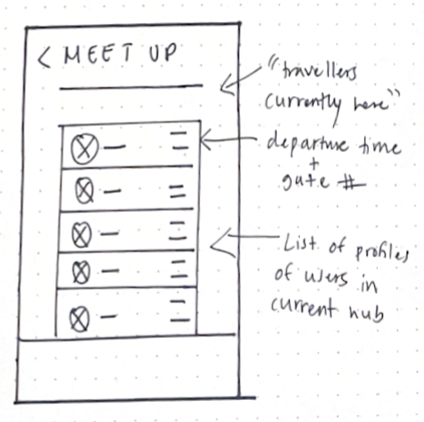 < MEET UP
"travellers
currently here"
departure time
+
gate #
List of profiles
of users in
current hub